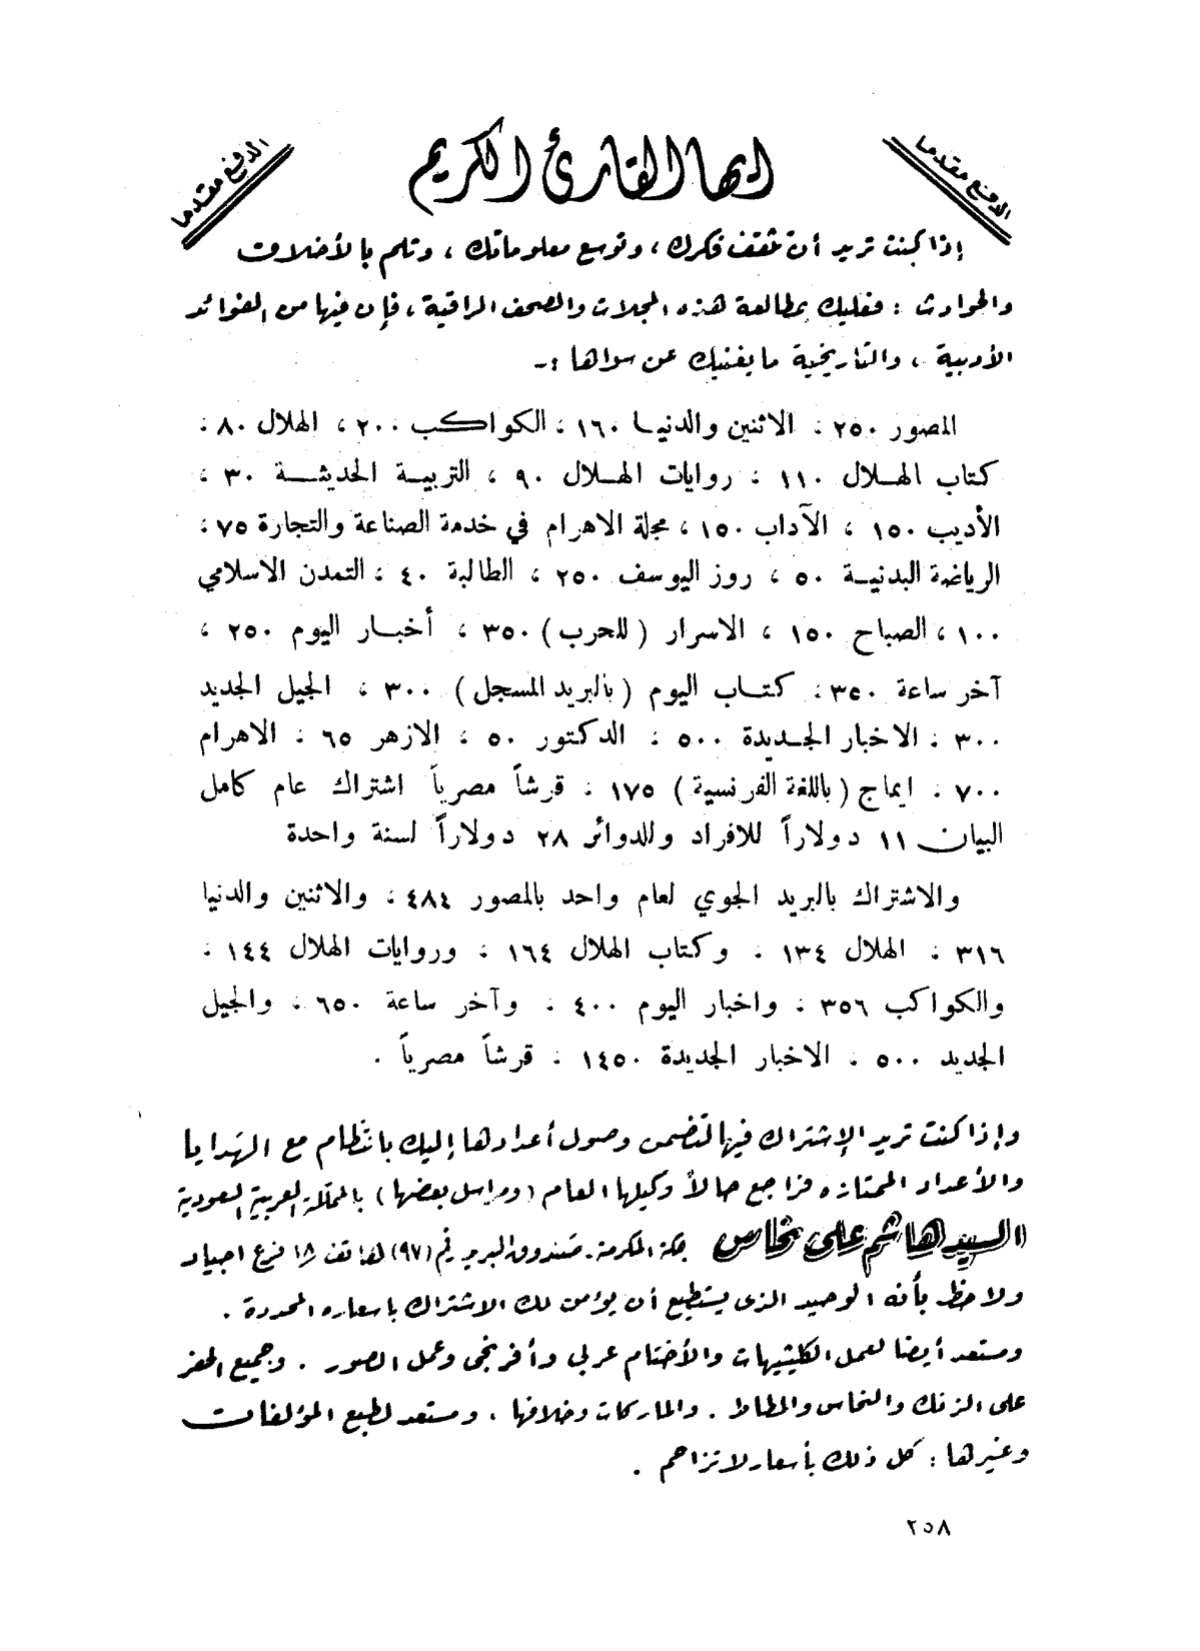 الدفع مقدما
ايها القارئ الكريم
الدفع مقدما
إذا كنت تريد أن تثقف فكرك ، وتوسع معلوماتك ، وتلم بالأخلاق
والحوادث : فعليك بمطالعة هذه المجلات والصحف الراقية ، فإن فيها من الفوائد
الأدبية ، والتاريخية ما يغنيك عن سواها :-
المصور ٢٥٠ ، الاثنين والدنيا ١٦٠ ، الكواكب ٢٠٠ ، الهلال ٨٠ ،
كتاب الهلال ١١٠ ، روايات الهلال ٩٠ ، التربية الحديثة ٣٠ ،
الأديب ١٥٠ ، الآداب ١٥٠ ، مجلة الاهرام في خدمة الصناعة والتجارة ٧٥ ،
الرياضة البدنية ٥٠ ، روز اليوسف ٢٥٠ ، الطالبة ٤٠ ، التمدن الاسلامي
١٠٠ ، الصباح ١٥٠ ، الاسرار ( للحرب ) ٣٥٠ ، أخبار اليوم ٢٥٠ ،
آخر ساعة ٣٥٠ ، كتاب اليوم ( بالبريد المسجل ) ٣٠٠ ، الجيل الجديد
٣٠٠ ، الاخبار الجديدة ٥٠٠ ، الدكتور ٥٠ ، الازهر ٦٥ ، الاهرام
٧٠٠ ، ايماج ( باللغة الفرنسية ) ١٧٥ ، قرشاً مصرياً اشتراك عام كامل
البيان ١١ دولاراً للافراد وللدوائر ٢٨ دولاراً لسنة واحدة
والاشتراك بالبريد الجوي لعام واحد بالمصور ٤٨٤ ، والاثنين والدنيا
٣١٦ ، الهلال ١٣٤ ، وكتاب الهلال ١٦٤ ، وروايات الهلال ١٤٤ ،
والكواكب ٣٥٦ ، واخبار اليوم ٤٠٠ ، وآخر ساعة ٦٥٠ ، والجيل
الجديد ٥٠٠ ، الاخبار الجديدة ١٤٥٠ ، قرشاً مصرياً .
وإذا كنت تريد الإشتراك فيها لتضمن وصول أعدادها إليك بانتظام مع الهدايا
والأعداد الممتازه فراجع حالاً وكيلها العام ( ومراسل بعضها ) بالمملكة العربية السعودية
السيد هاشم على نحاس بمكة المكرمة - صندوق البريد رقم (٩٧) هاتف ١٨ فرع اجياد
ولاحظ بأنه الوحيد الذى يستطيع أن يؤمن لك الاشتراك باسعاره المحددة .
ومستعد أيضا لعمل الكليشيهات والأختام عربى وأفرنجى وعمل الصور . وجميع الحفر
على الزنك والنحاس والمطاط . والماركات وخلافها ، ومستعد لطبع المؤلفات
وغيرها : كل ذلك بأسعار لا تزاحم .
٢٥٨